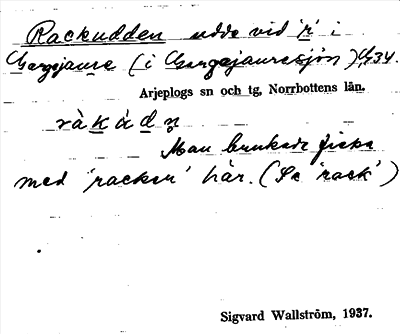 Rackudden udde vid 'r' i
Gargejaure (i Gargejauresjön) G34.
Arjeplogs sn och tg, Norrbottens län.
ràkád n̥
Man brukade fiska
med 'racken' här. (Se 'rack')
Sigvard Wallström, 1937.